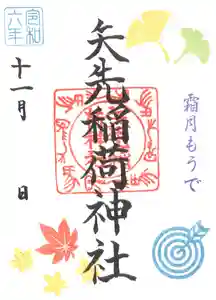 矢先稲荷神社
霜月もうで
令和
六年
十一月　日